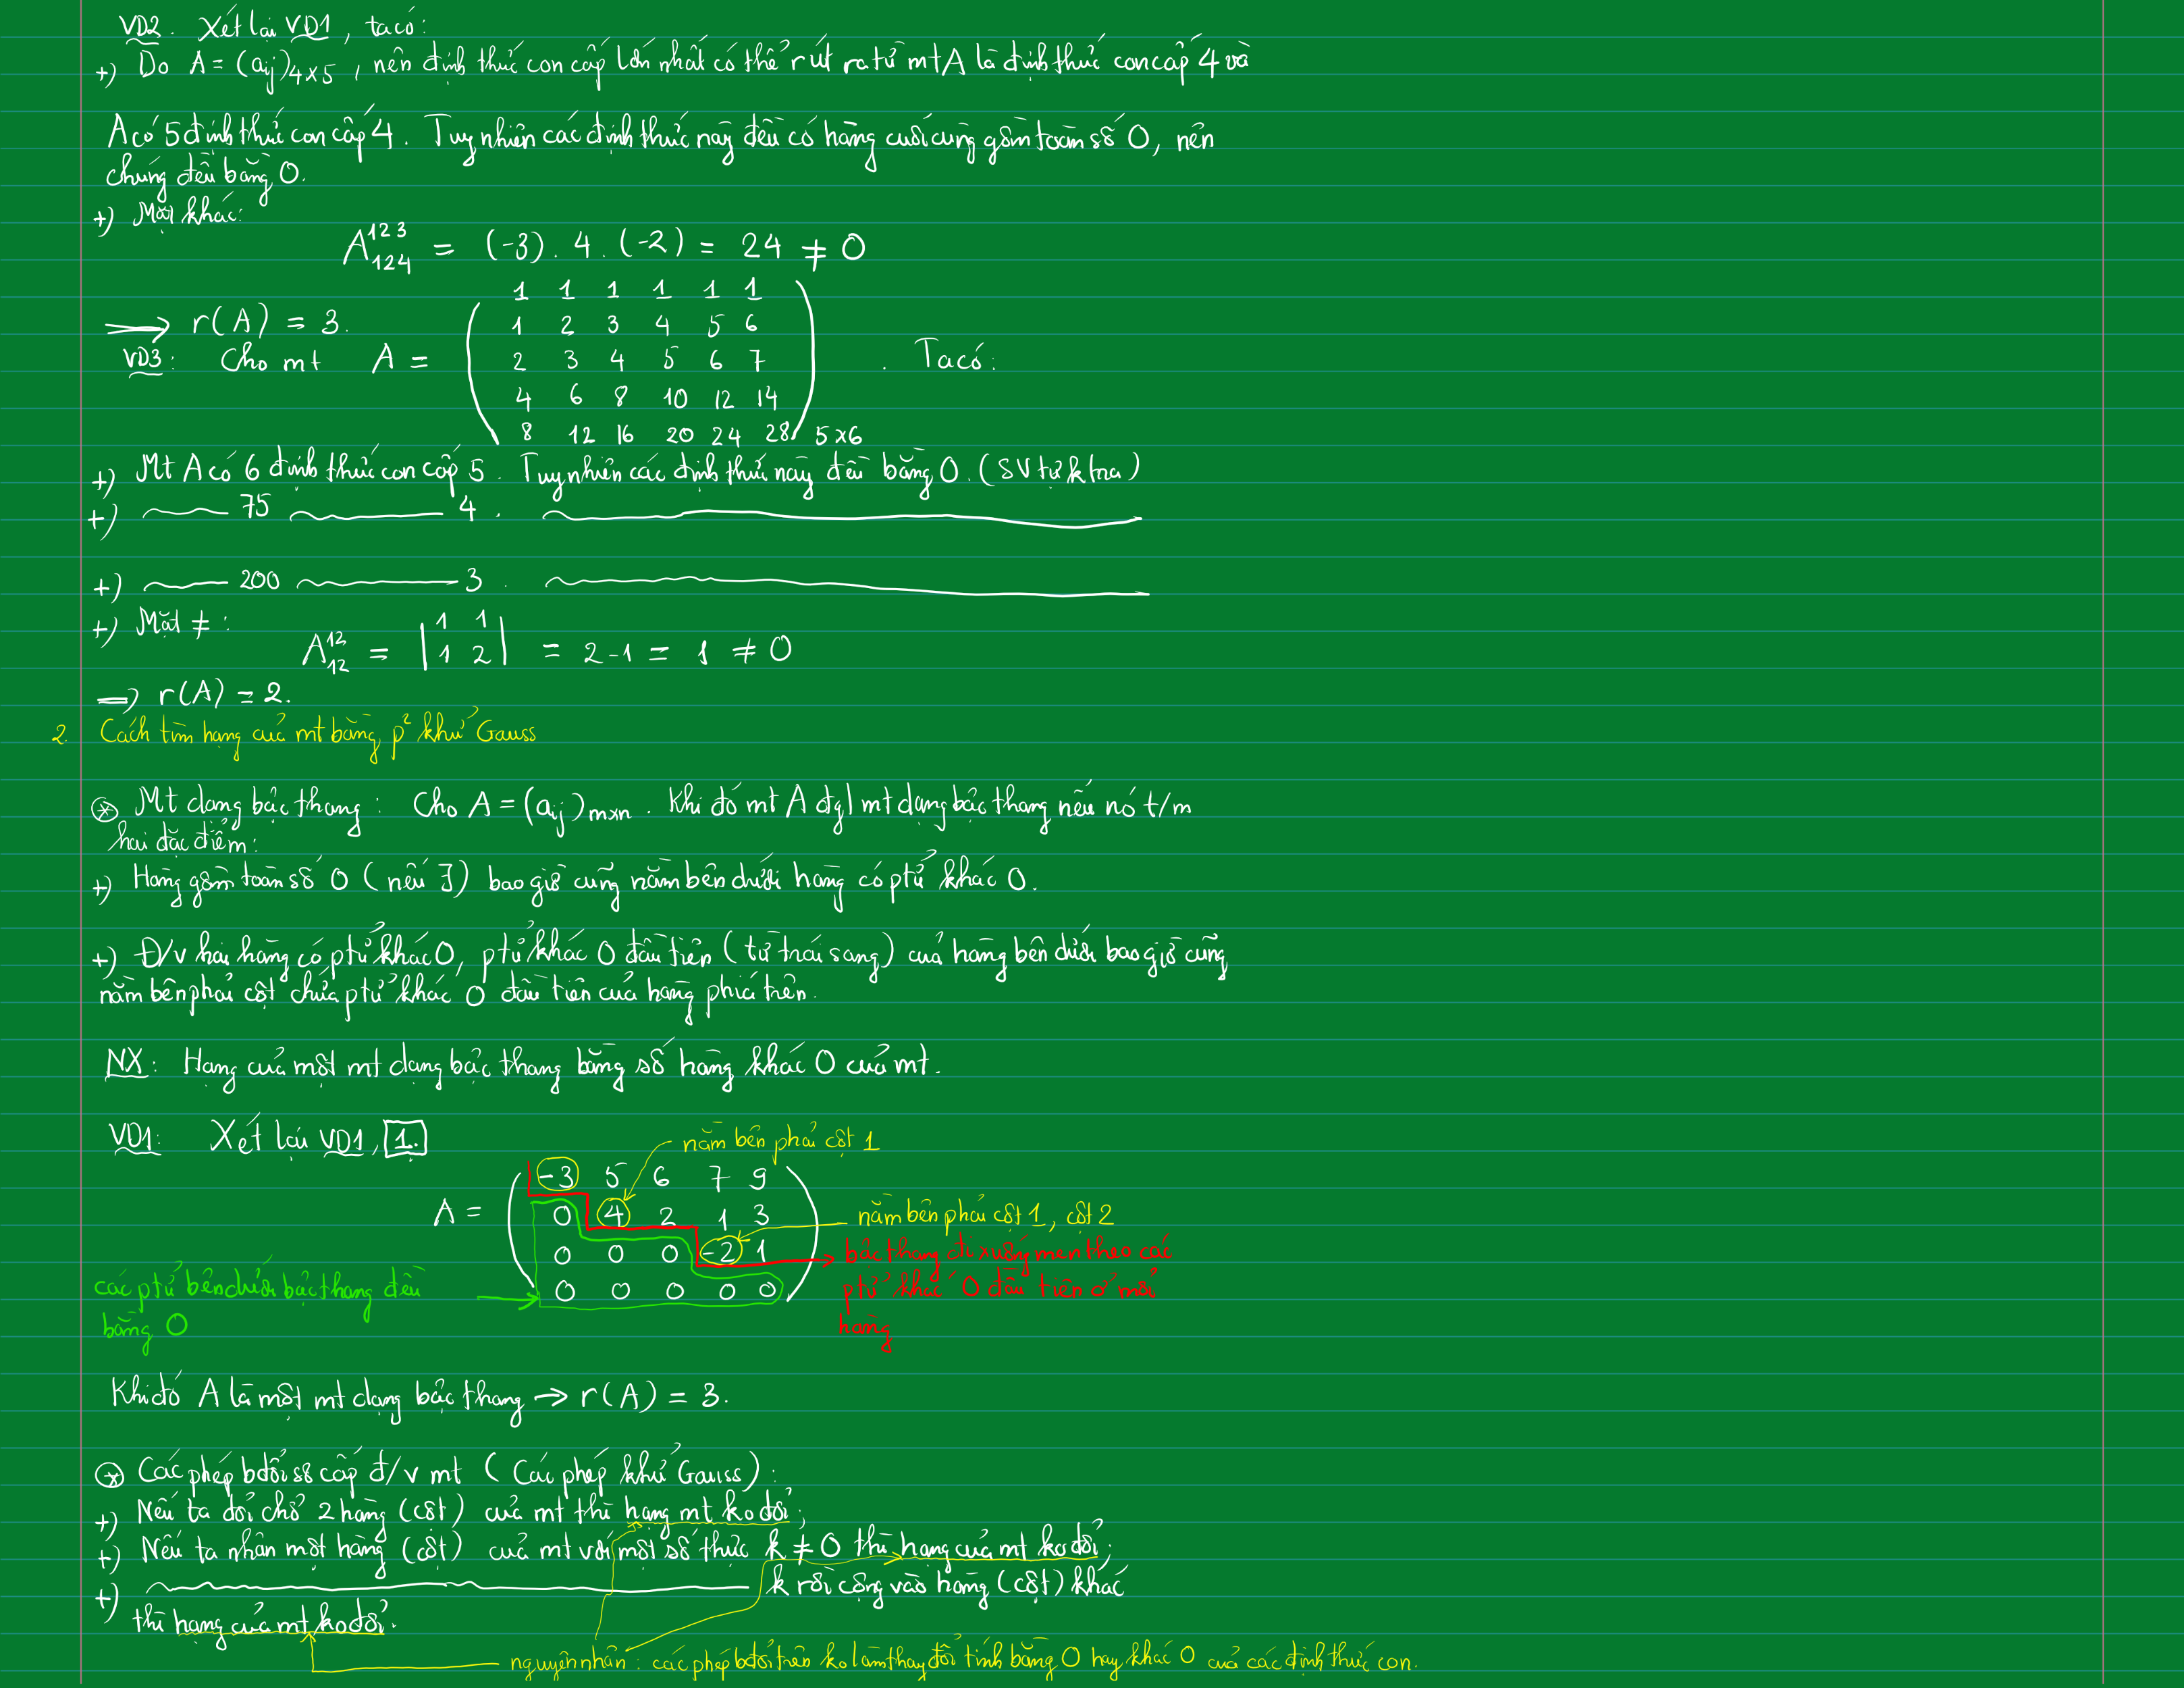 VD2. Xét lại VD1, ta có:
+) Do A = (aij)4x5, nên định thức con cấp lớn nhất có thể rút ra từ mt A là định thức con cấp 4 và
A có 5 định thức con cấp 4. Tuy nhiên các định thức này đều có hàng cuối cùng gồm toàn số 0, nên
chúng đều bằng 0.
+) Mặt khác:
A^{123}_{124} = (-3). 4. (-2) = 24 ≠ 0
⟹ r(A) = 3.
VD3: Cho mt A =
1 1 1 1 1 1
1 2 3 4 5 6
2 3 4 5 6 7
4 6 8 10 12 14
8 12 16 20 24 28
5x6
. Ta có:
+) Mt A có 6 định thức con cấp 5. Tuy nhiên các định thức này đều bằng 0. (SV tự ktra)
+) ~ 75 ~ 4. ~
+) ~ 200 ~ 3. ~
+) Mặt ≠:
A^{12}_{12} = |1 1; 1 2| = 2-1 = 1 ≠ 0
⟹ r(A) = 2.
2. Cách tìm hạng của mt bằng p² khử Gauss
⊛ Mt dạng bậc thang: Cho A = (aij)mxn. Khi đó mt A đgl mt dạng bậc thang nếu nó t/m
hai đặc điểm:
+) Hàng gồm toàn số 0 (nếu ∃) bao giờ cũng nằm bên dưới hàng có ptử khác 0.
+) Đ/v hai hàng có ptử khác 0, ptử khác 0 đầu tiên (từ trái sang) của hàng bên dưới bao giờ cũng
nằm bên phải cột chứa ptử khác 0 đầu tiên của hàng phía trên.
NX: Hạng của một mt dạng bậc thang bằng số hàng khác 0 của mt.
VD1: Xét lại VD1, 1.
nằm bên phải cột 1
A =
-3 5 6 7 9
0 4 2 1 3
0 0 0 -2 1
0 0 0 0 0
nằm bên phải cột 1, cột 2
bậc thang đi xuống men theo các
ptử khác 0 đầu tiên ở mỗi
hàng
các ptử bên dưới bậc thang đều
bằng 0
Khi đó A là một mt dạng bậc thang → r(A) = 3.
⊛ Các phép bđổi sơ cấp đ/v mt (Các phép khử Gauss):
+) Nếu ta đổi chỗ 2 hàng (cột) của mt thì hạng mt ko đổi;
+) Nếu ta nhân một hàng (cột) của mt với một số thực k ≠ 0 thì hạng của mt ko đổi;
+) ~ k rồi cộng vào hàng (cột) khác
thì hạng của mt ko đổi.
nguyên nhân: các phép bđổi trên ko làm thay đổi tính bằng 0 hay khác 0 của các định thức con.